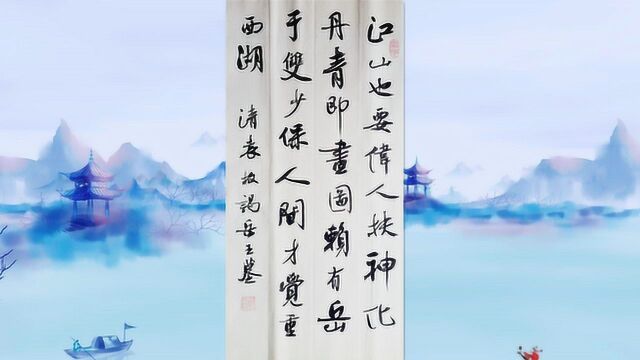 江山也要偉人扶神化
丹青即畫圖賴有岳
于雙少保人間才覺重
西湖 清袁枚謁岳王墓